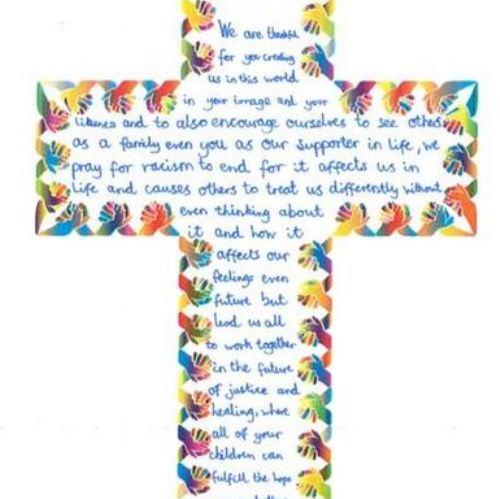 We are thankful
for you creating
us in this world
in your image and your
likeness and to also encourage ourselves to see others
as a family even you as our supporter in life, we
pray for racism to end for it affects us in
life and causes others to treat us differently without
even thinking about
it and how it
affects our
feelings even
future but
lead us all
to work together
in the future
of justice and
healing, where
all of your
children can
fulfill the hope